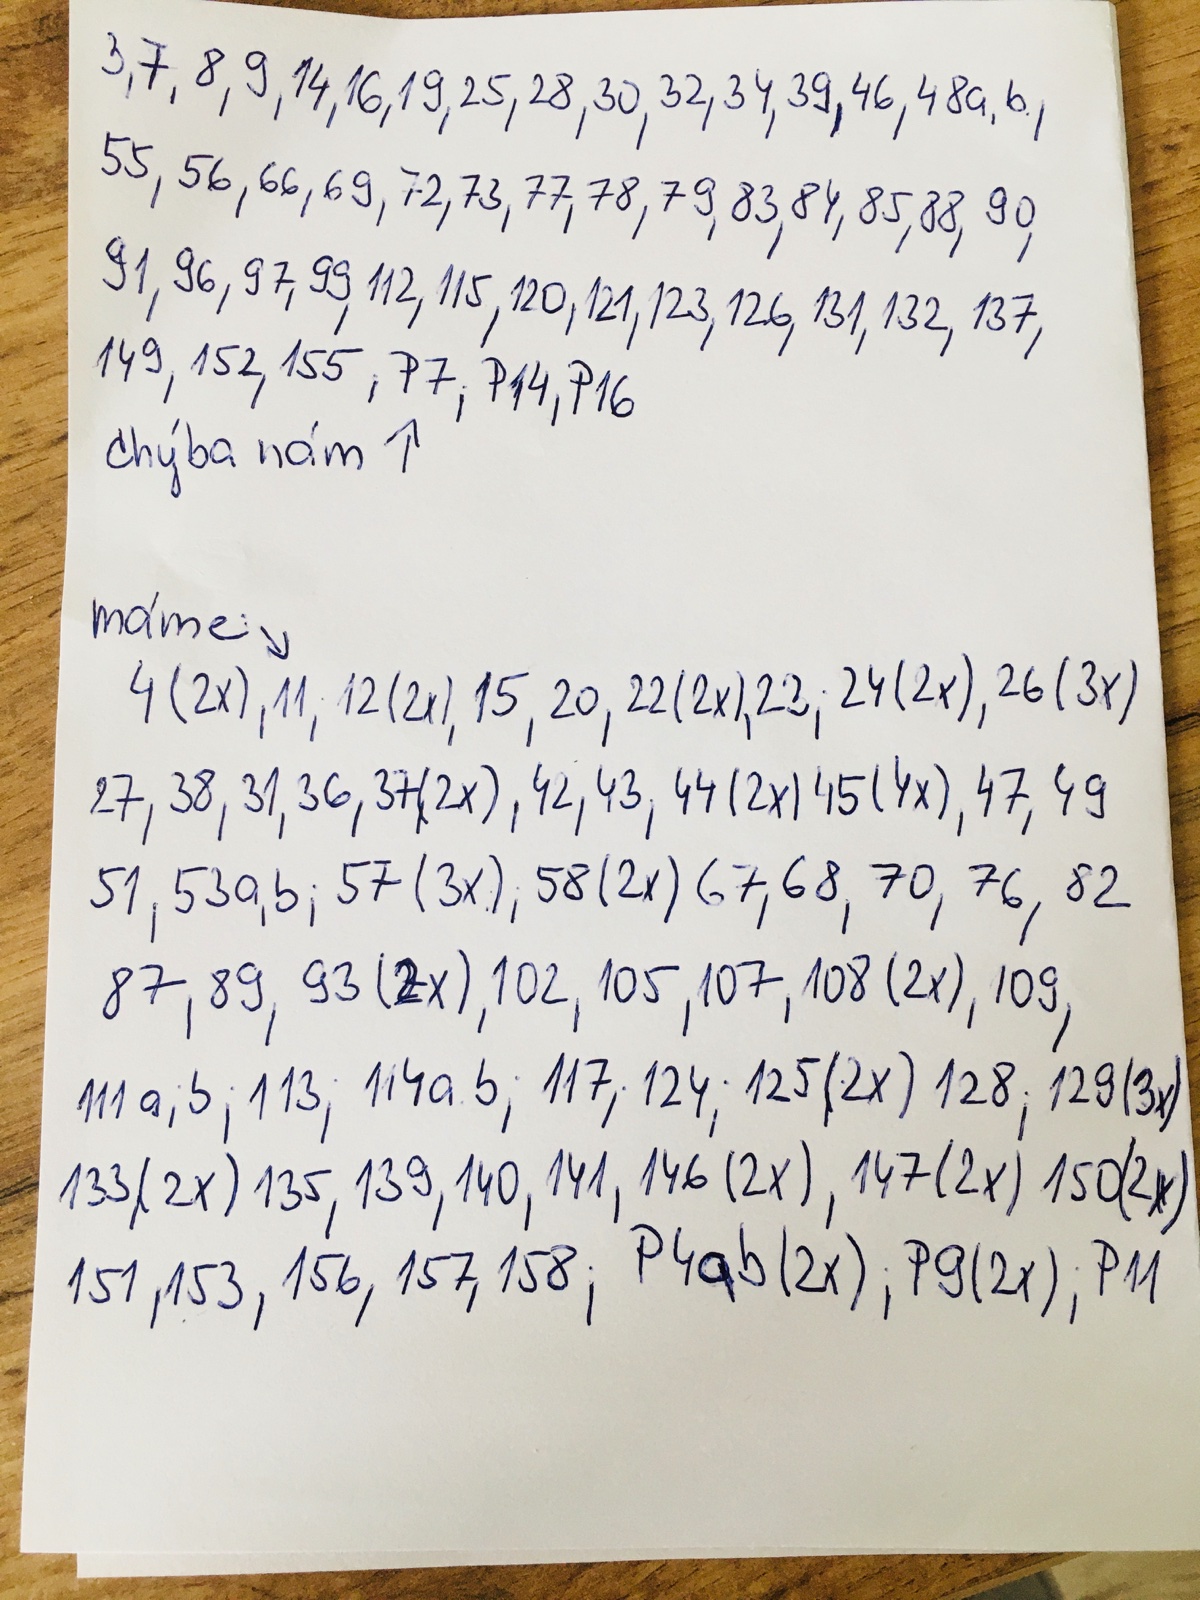 3, 7, 8, 9, 14, 16, 19, 25, 28, 30, 32, 34, 39, 46, 48a, b,
55, 56, 66, 69, 72, 73, 77, 78, 79, 83, 84, 85, 88, 90,
91, 96, 97, 99, 112, 115, 120, 121, 123, 126, 131, 132, 137,
149, 152, 155, P7, P14, P16
chýba nám ↑
máme: ↘
4 (2x), 11, 12 (2x), 15, 20, 22 (2x), 23, 24 (2x), 26 (3x)
27, 38, 31, 36, 37 (2x), 42, 43, 44 (2x) 45 (4x), 47, 49
51, 53a,b; 57 (3x), 58 (2x) 67, 68, 70, 76, 82
87, 89, 93 (2x), 102, 105, 107, 108 (2x), 109,
111 a, b; 113; 114a b; 117, 124; 125 (2x) 128; 129 (3x)
133 (2x) 135, 139, 140, 141, 146 (2x), 147 (2x) 150 (2x)
151, 153, 156, 157, 158; P4ab (2x); P9 (2x); P11